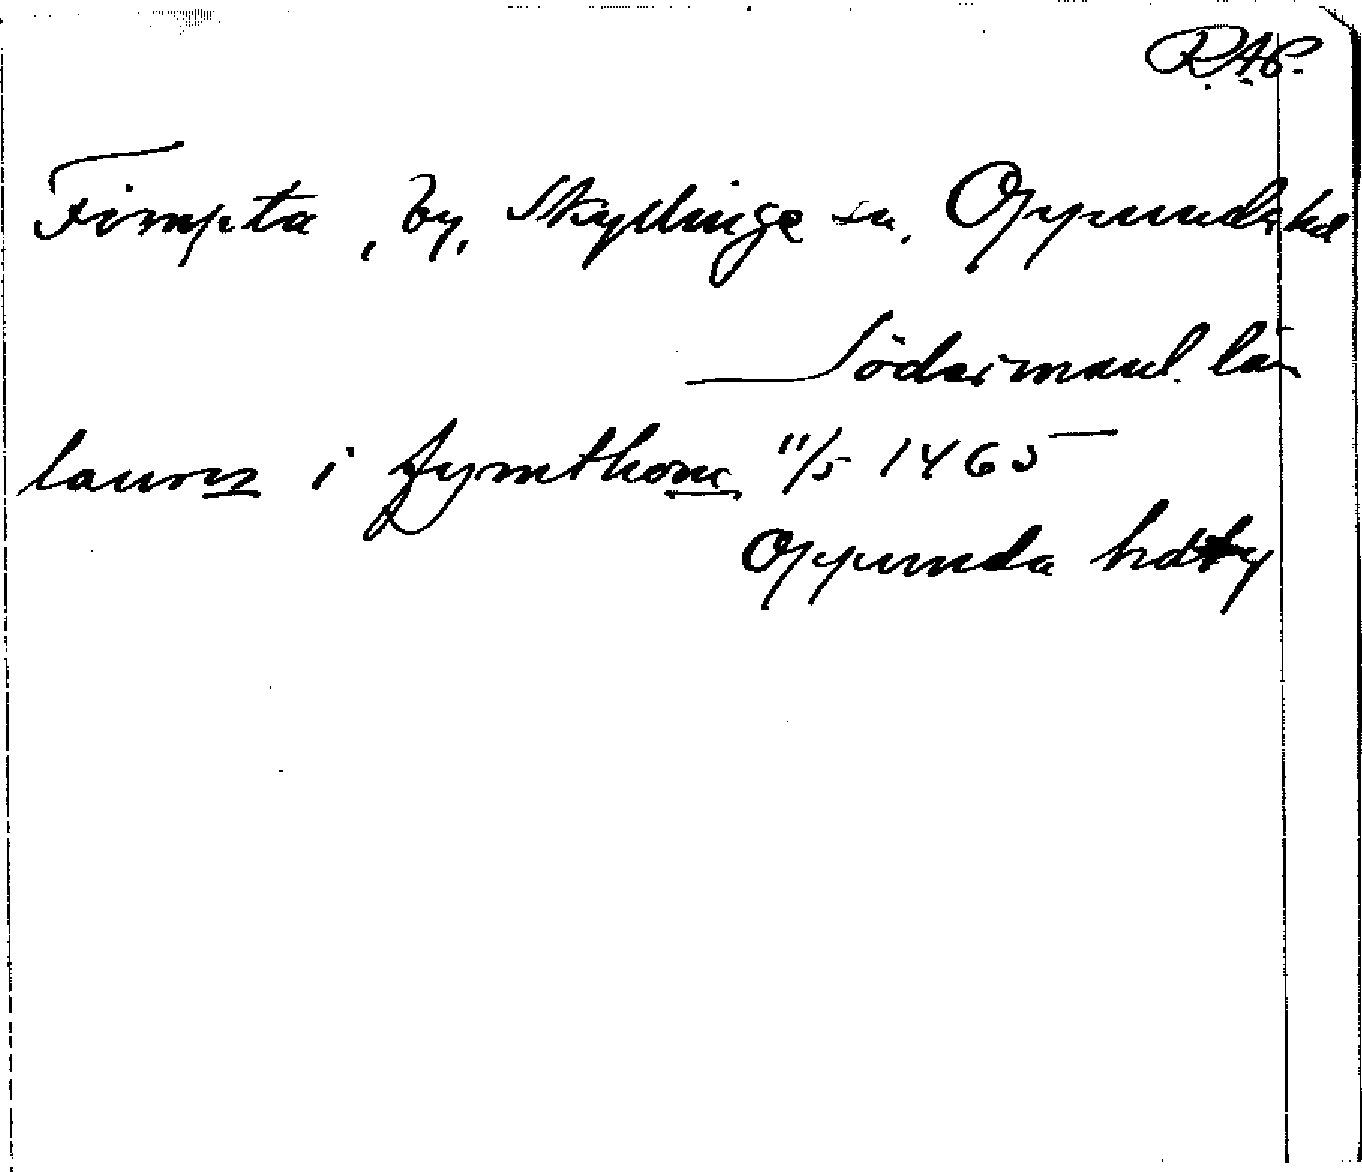 RAP.
Fimpta, by, Skyllinge sn. Oppunda hd
Södermanl. län
laurz i fymthom 11/5 1465
Oppunda hd